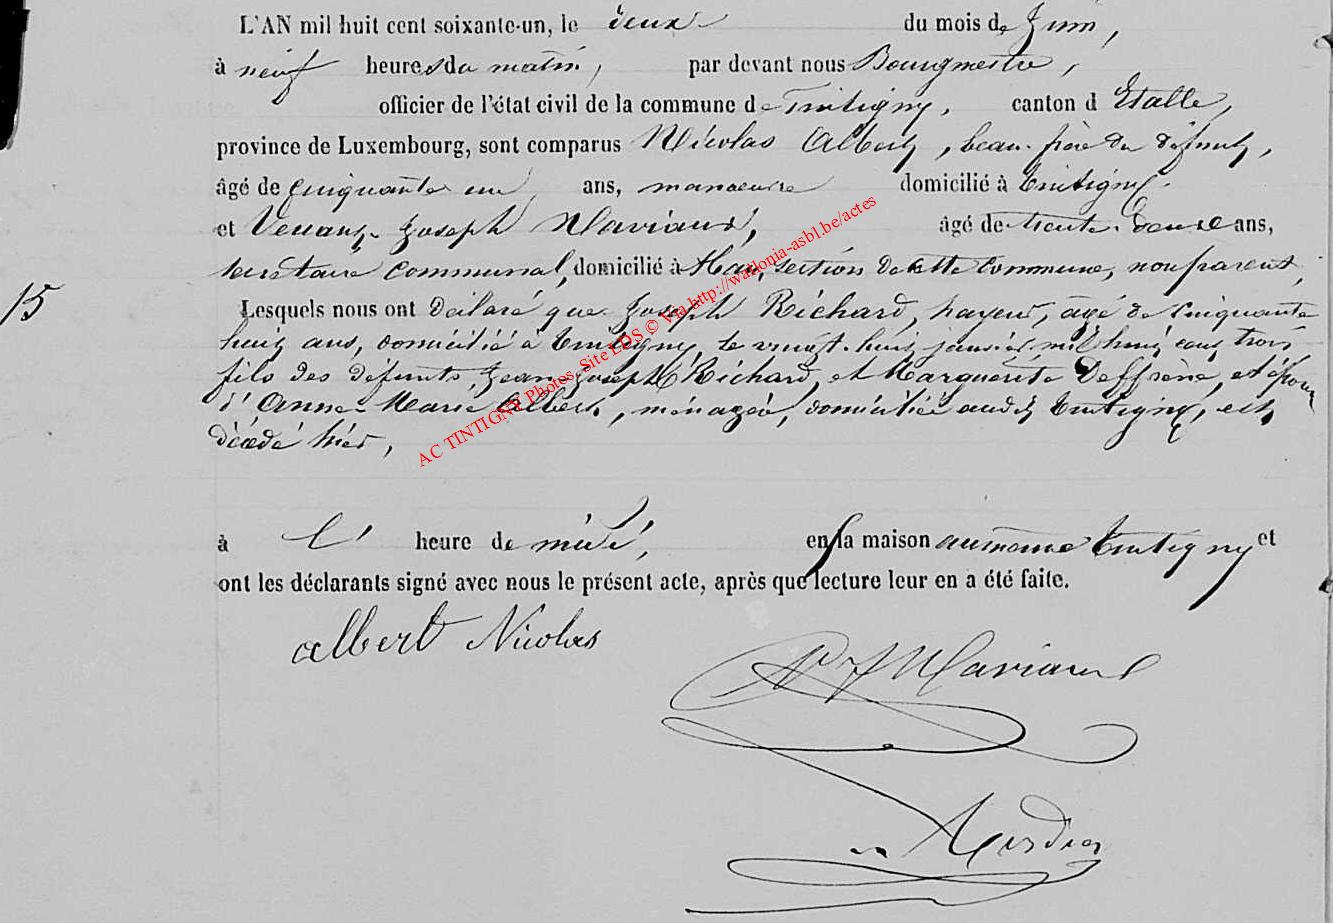 L'AN mil huit cent soixante-un, le deux du mois de Juin,
à neuf heures du matin, par devant nous Bourgmestre,
officier de l'état civil de la commune de Tintigny, canton d Etalle,
province de Luxembourg, sont comparus Nicolas Albert, beau-frère du défunt,
âgé de cinquante un ans, manoeuvre domicilié à Tintigny
et Venant Joseph Maviaux, âgé de trente-deux ans,
secrétaire communal, domicilié à Han, section de cette commune, non parent,
15
Lesquels nous ont déclaré que Joseph Richard, âgé de cinquante
huit ans, domicilié à Tintigny, le vingt-huit janvier mil huit cent trois
fils des défunts, Jean Joseph Richard, et Marguerite Deffrène, et époux
d'Anne-Marie Albert, ménagère, domiciliée audit Tintigny, est
décédé hier,
à l' heure de midi, en sa maison au même Tintigny et
ont les déclarants signé avec nous le présent acte, après que lecture leur en a été faite.
albert Nicolas
V J Maviaux
AC TINTIGNY Photos, Site LDS © Via http://wallonia-asbl.be/actes